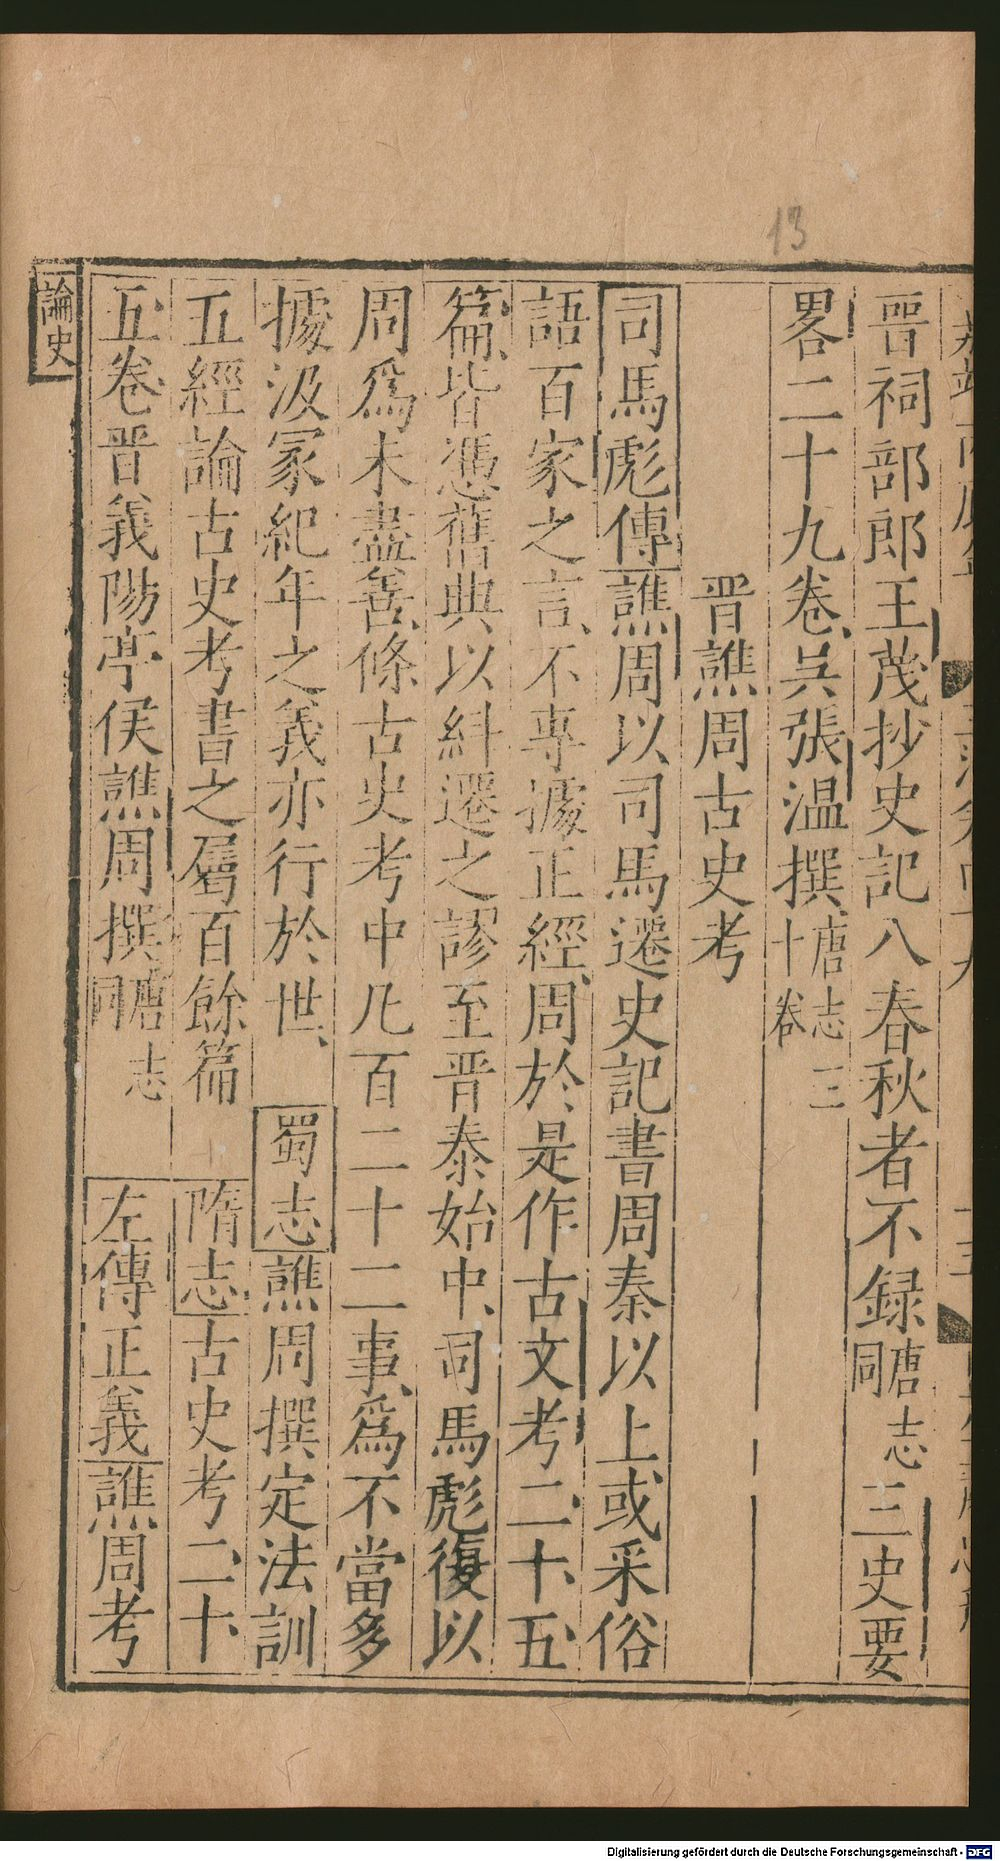 13
晋祠部郎王茂抄史記八春秋者不録唐志同三史要
畧二十九卷吳張温撰唐志三十卷
晋譙周古史考
司馬彪傳譙周以司馬遷史記書周秦以上或采俗
語百家之言不專據正經周於是作古文考二十五
篇皆憑舊典以糾遷之謬至晋泰始中司馬彪復以
周爲未盡善條古史考中凡百二十二事爲不當多
據汲冢紀年之義亦行於世 蜀志譙周撰定法訓
五經論古史考書之屬百餘篇 隋志古史考二十
五卷晋義陽亭侯譙周撰唐志同 左傳正義譙周考
論史
Digitalisierung gefördert durch die Deutsche Forschungsgemeinschaft - DFG